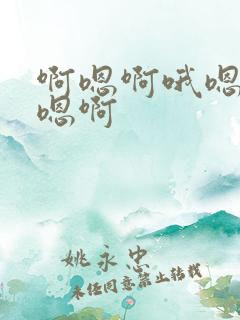 啊嗯啊哦嗯
嗯啊
姚永忠
未经同意禁止转载